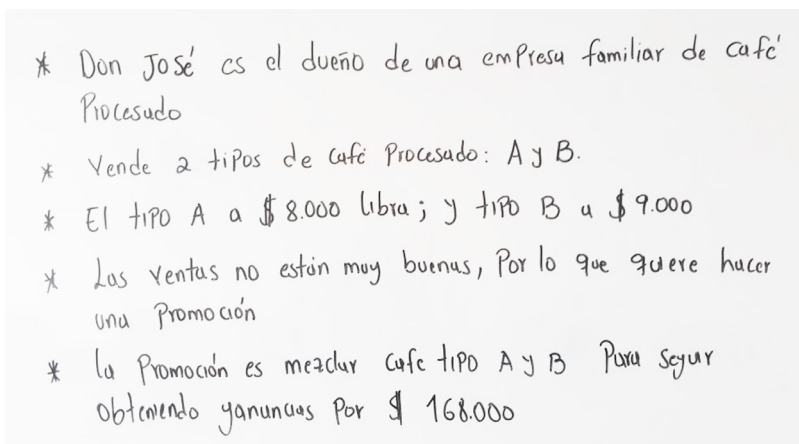 * Don José es el dueño de una empresa familiar de café
Procesado
* Vende 2 tipos de café Procesado: A y B.
* El tipo A a $ 8.000 libra; y tipo B a $ 9.000
* Las ventas no están muy buenas, Por lo que quiere hacer
una Promoción
* la Promoción es mezclar cafe tipo A y B Para seguir
obteniendo ganancias Por $ 168.000